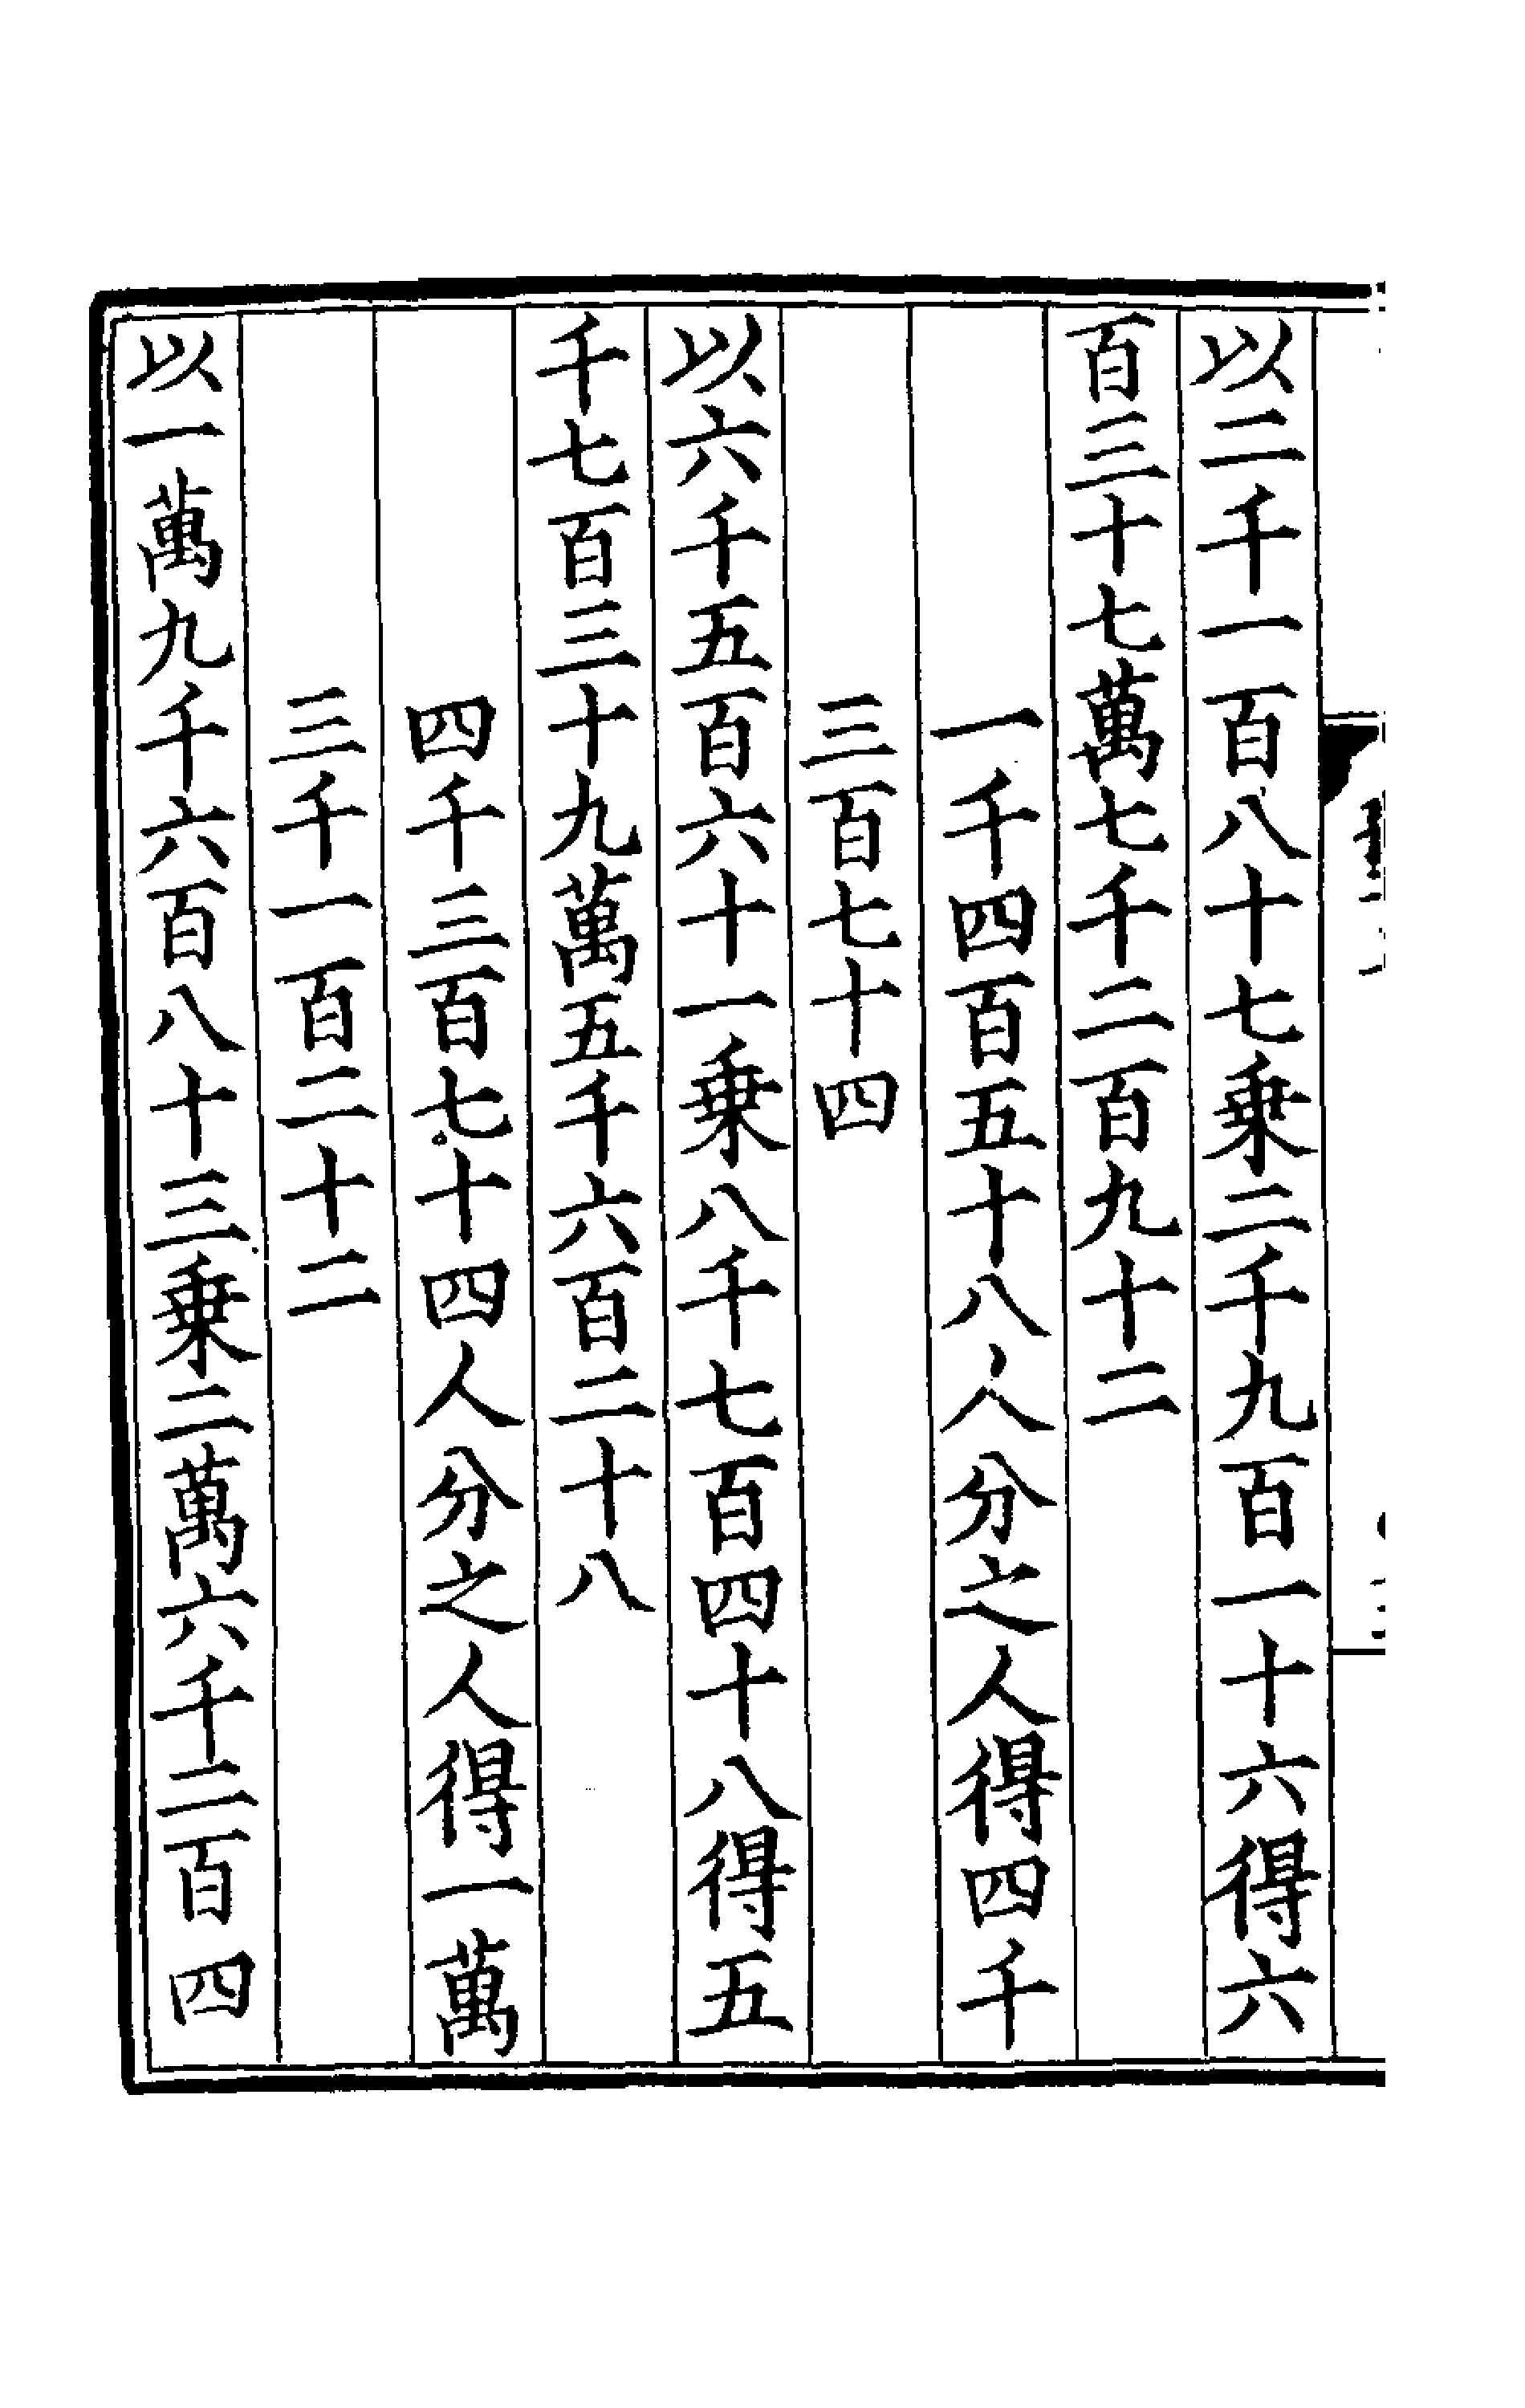 以二千一百八十七乗二千九百一十六得六
百三十七萬七千二百九十二
一千四百五十八人分之人得四千
三百七十四
以六千五百六十一乗八千七百四十八得五
千七百三十九萬五千六百二十八
四千三百七十四人分之人得一萬
三千一百二十二
以一萬九千六百八十三乗二萬六千二百四